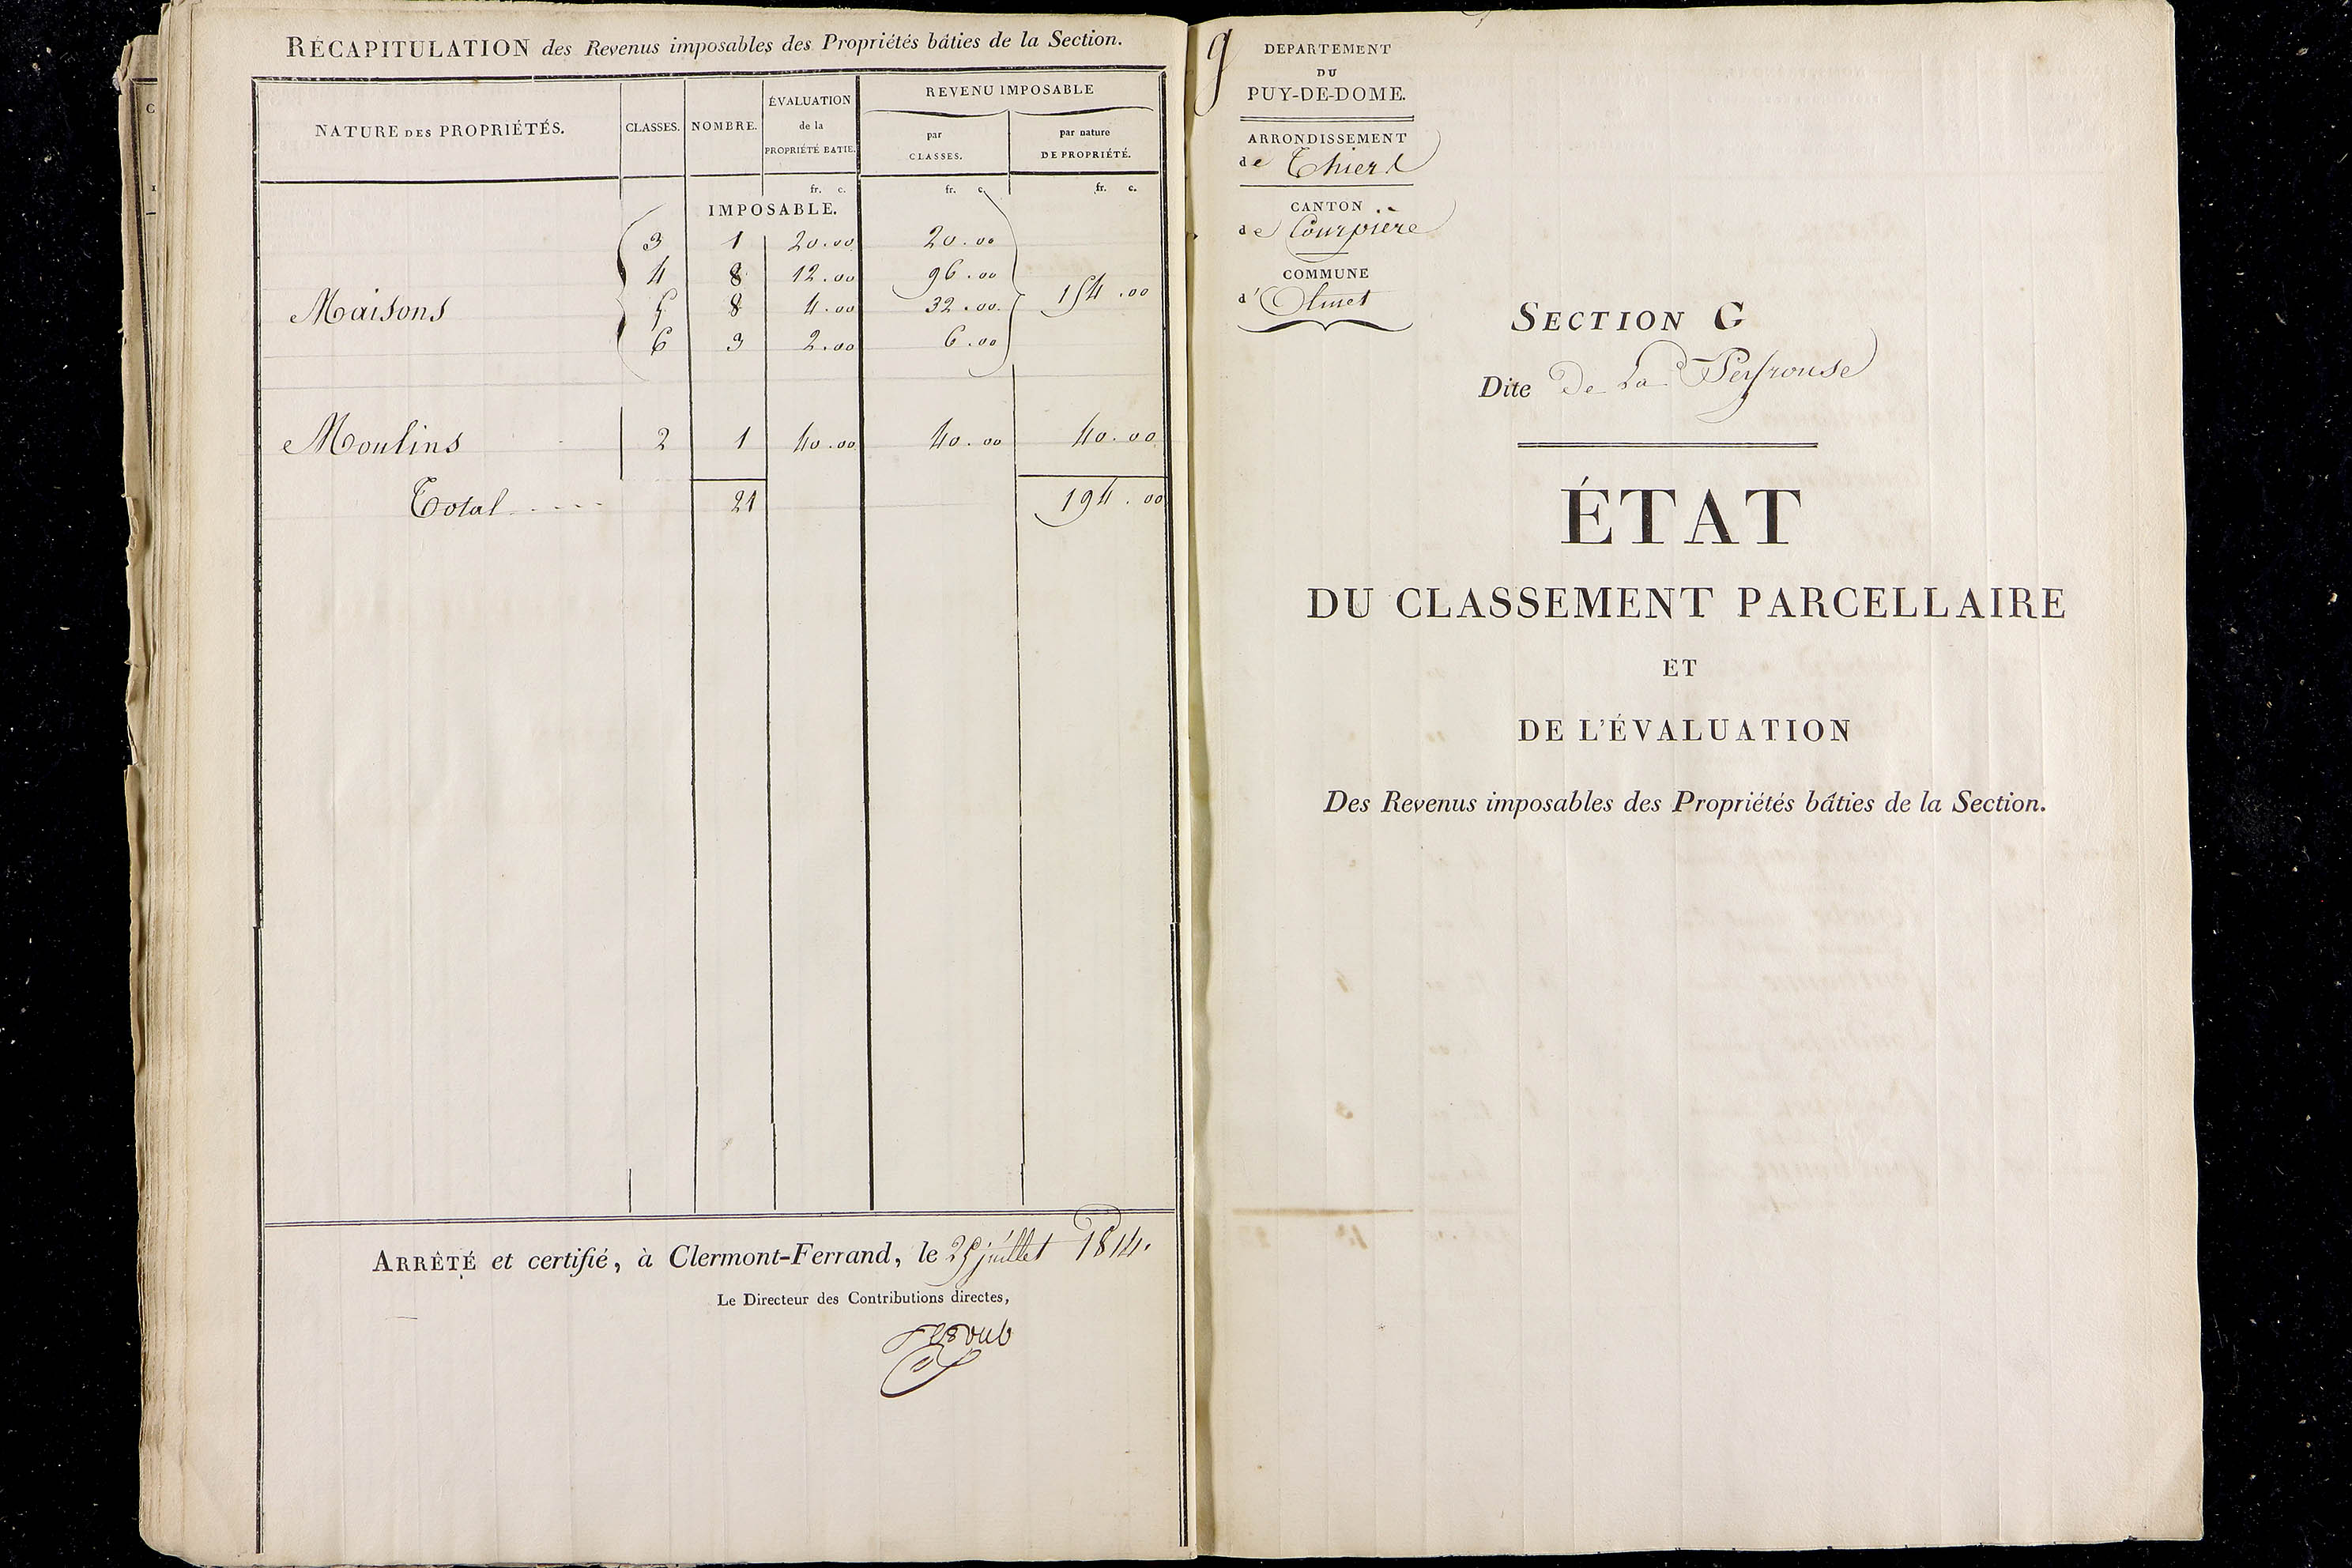 RÉCAPITULATION des Revenus imposables des Propriétés bâties de la Section.
NATURE DES PROPRIÉTÉS. CLASSES. NOMBRE. ÉVALUATION de la PROPRIÉTÉ BATIE. REVENU IMPOSABLE
par CLASSES. par nature DE PROPRIÉTÉ.
fr. c. fr. c. fr. c.
IMPOSABLE.
3 1 20.00 20.00
4 8 12.00 96.00
Maisons 5 8 4.00 32.00 154.00
6 3 2.00 6.00
Moulins 2 1 40.00 40.00 40.00
Total 21 194.00
ARRÊTÉ et certifié, à Clermont-Ferrand, le 25 juillet 1814.
Le Directeur des Contributions directes,
g
DEPARTEMENT
DU
PUY-DE-DOME.
ARRONDISSEMENT
de Thiers
CANTON
de Courpière
COMMUNE
d'Olmet
SECTION G
Dite De La
ÉTAT
DU CLASSEMENT PARCELLAIRE
ET
DE L'ÉVALUATION
Des Revenus imposables des Propriétés bâties de la Section.